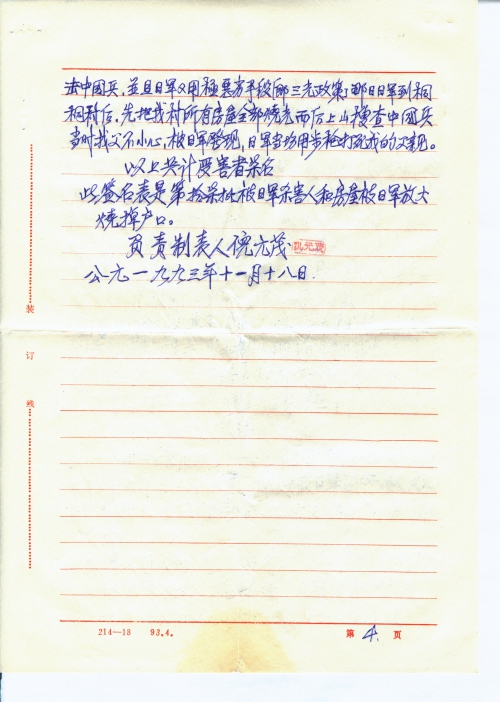 去中国兵，并且日军又用极恶劣手段（即三光政策）那日日军到桐
桐村后，先把我村所有房屋全部烧光而后上山搜查中国兵
当时我父不小心，被日军发现，日军当场用步枪打死我的父亲。
以上共计受害者杂名
此签名表是第拾柒批被日军杀害人和房屋被日军放火
烧掉户口。
负责制表人倪元茂
公元一九九三年十一月十八日.
装
订
线
214—18 93.4.
第 4. 页